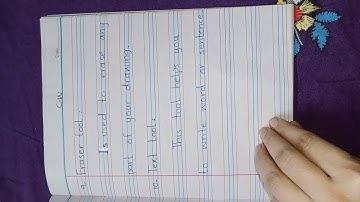 C.W
9. Eraser tool:
Is used to erase any
part of your drawing.
10. Text tool:
This tool helps you
to write word or sentence.